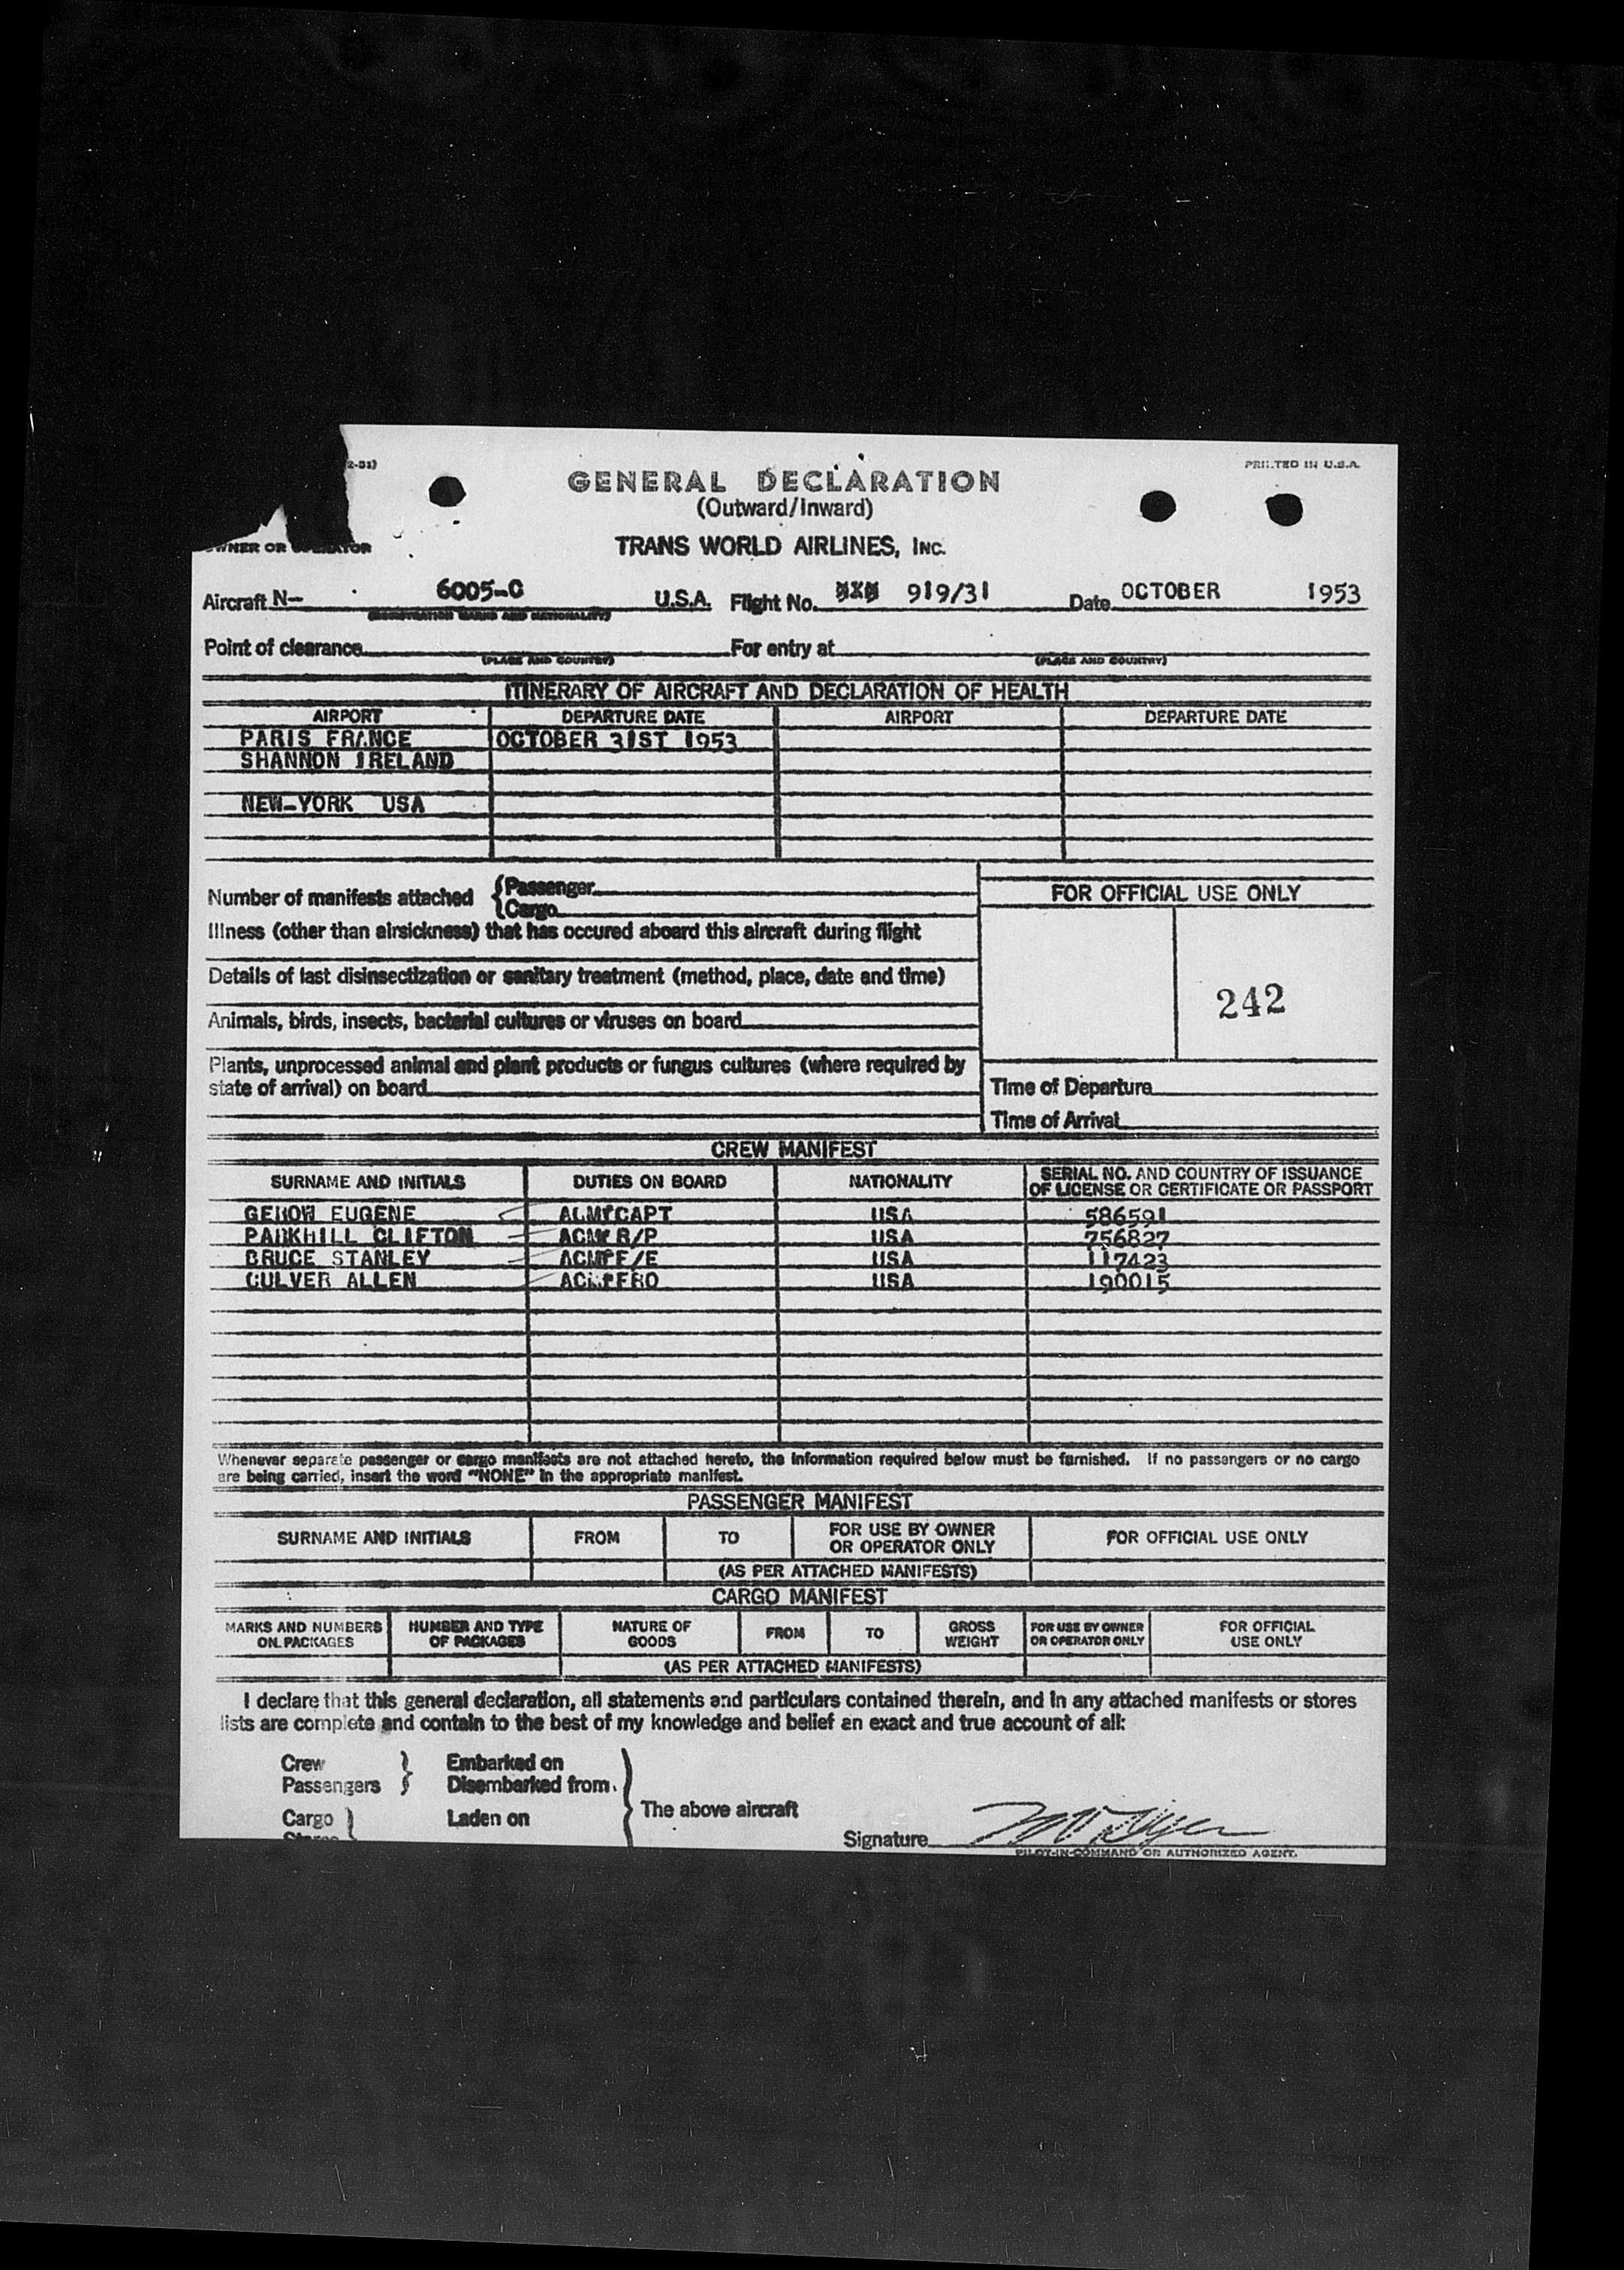 2-51)
PRINTED IN U.S.A.
GENERAL DECLARATION
(Outward/Inward)
OWNER OR OPERATOR
TRANS WORLD AIRLINES, INC.
Aircraft N- 6005-C U.S.A. Flight No. 919/31 Date OCTOBER 1953
(REGISTRATION MARKS AND NATIONALITY)
Point of clearance For entry at
(PLACE AND COUNTRY) (PLACE AND COUNTRY)
ITINERARY OF AIRCRAFT AND DECLARATION OF HEALTH
AIRPORT DEPARTURE DATE AIRPORT DEPARTURE DATE
PARIS FRANCE OCTOBER 31ST 1953
SHANNON IRELAND
NEW-YORK USA
Number of manifests attached { Passenger
{ Cargo
FOR OFFICIAL USE ONLY
Illness (other than airsickness) that has occured aboard this aircraft during flight
Details of last disinsectization or sanitary treatment (method, place, date and time)
242
Animals, birds, insects, bacterial cultures or viruses on board
Plants, unprocessed animal and plant products or fungus cultures (where required by
state of arrival) on board
Time of Departure
Time of Arrival
CREW MANIFEST
SURNAME AND INITIALS DUTIES ON BOARD NATIONALITY SERIAL NO. AND COUNTRY OF ISSUANCE
OF LICENSE OR CERTIFICATE OR PASSPORT
GEROW EUGENE CAPT USA 586591
PARKHILL CLIFTON R/P USA 756827
BRUCE STANLEY F/E USA 117423
CULVER ALLEN FRO USA 190015
Whenever separate passenger or cargo manifests are not attached hereto, the information required below must be furnished. If no passengers or no cargo
are being carried, insert the word "NONE" in the appropriate manifest.
PASSENGER MANIFEST
SURNAME AND INITIALS FROM TO FOR USE BY OWNER
OR OPERATOR ONLY FOR OFFICIAL USE ONLY
(AS PER ATTACHED MANIFESTS)
CARGO MANIFEST
MARKS AND NUMBERS
ON PACKAGES NUMBER AND TYPE
OF PACKAGES NATURE OF
GOODS FROM TO GROSS
WEIGHT FOR USE BY OWNER
OR OPERATOR ONLY FOR OFFICIAL
USE ONLY
(AS PER ATTACHED MANIFESTS)
I declare that this general declaration, all statements and particulars contained therein, and in any attached manifests or stores
lists are complete and contain to the best of my knowledge and belief an exact and true account of all:
Crew } Embarked on
Passengers } Disembarked from
The above aircraft
Cargo } Laden on
Stores
Signature
PILOT-IN-COMMAND OR AUTHORIZED AGENT.